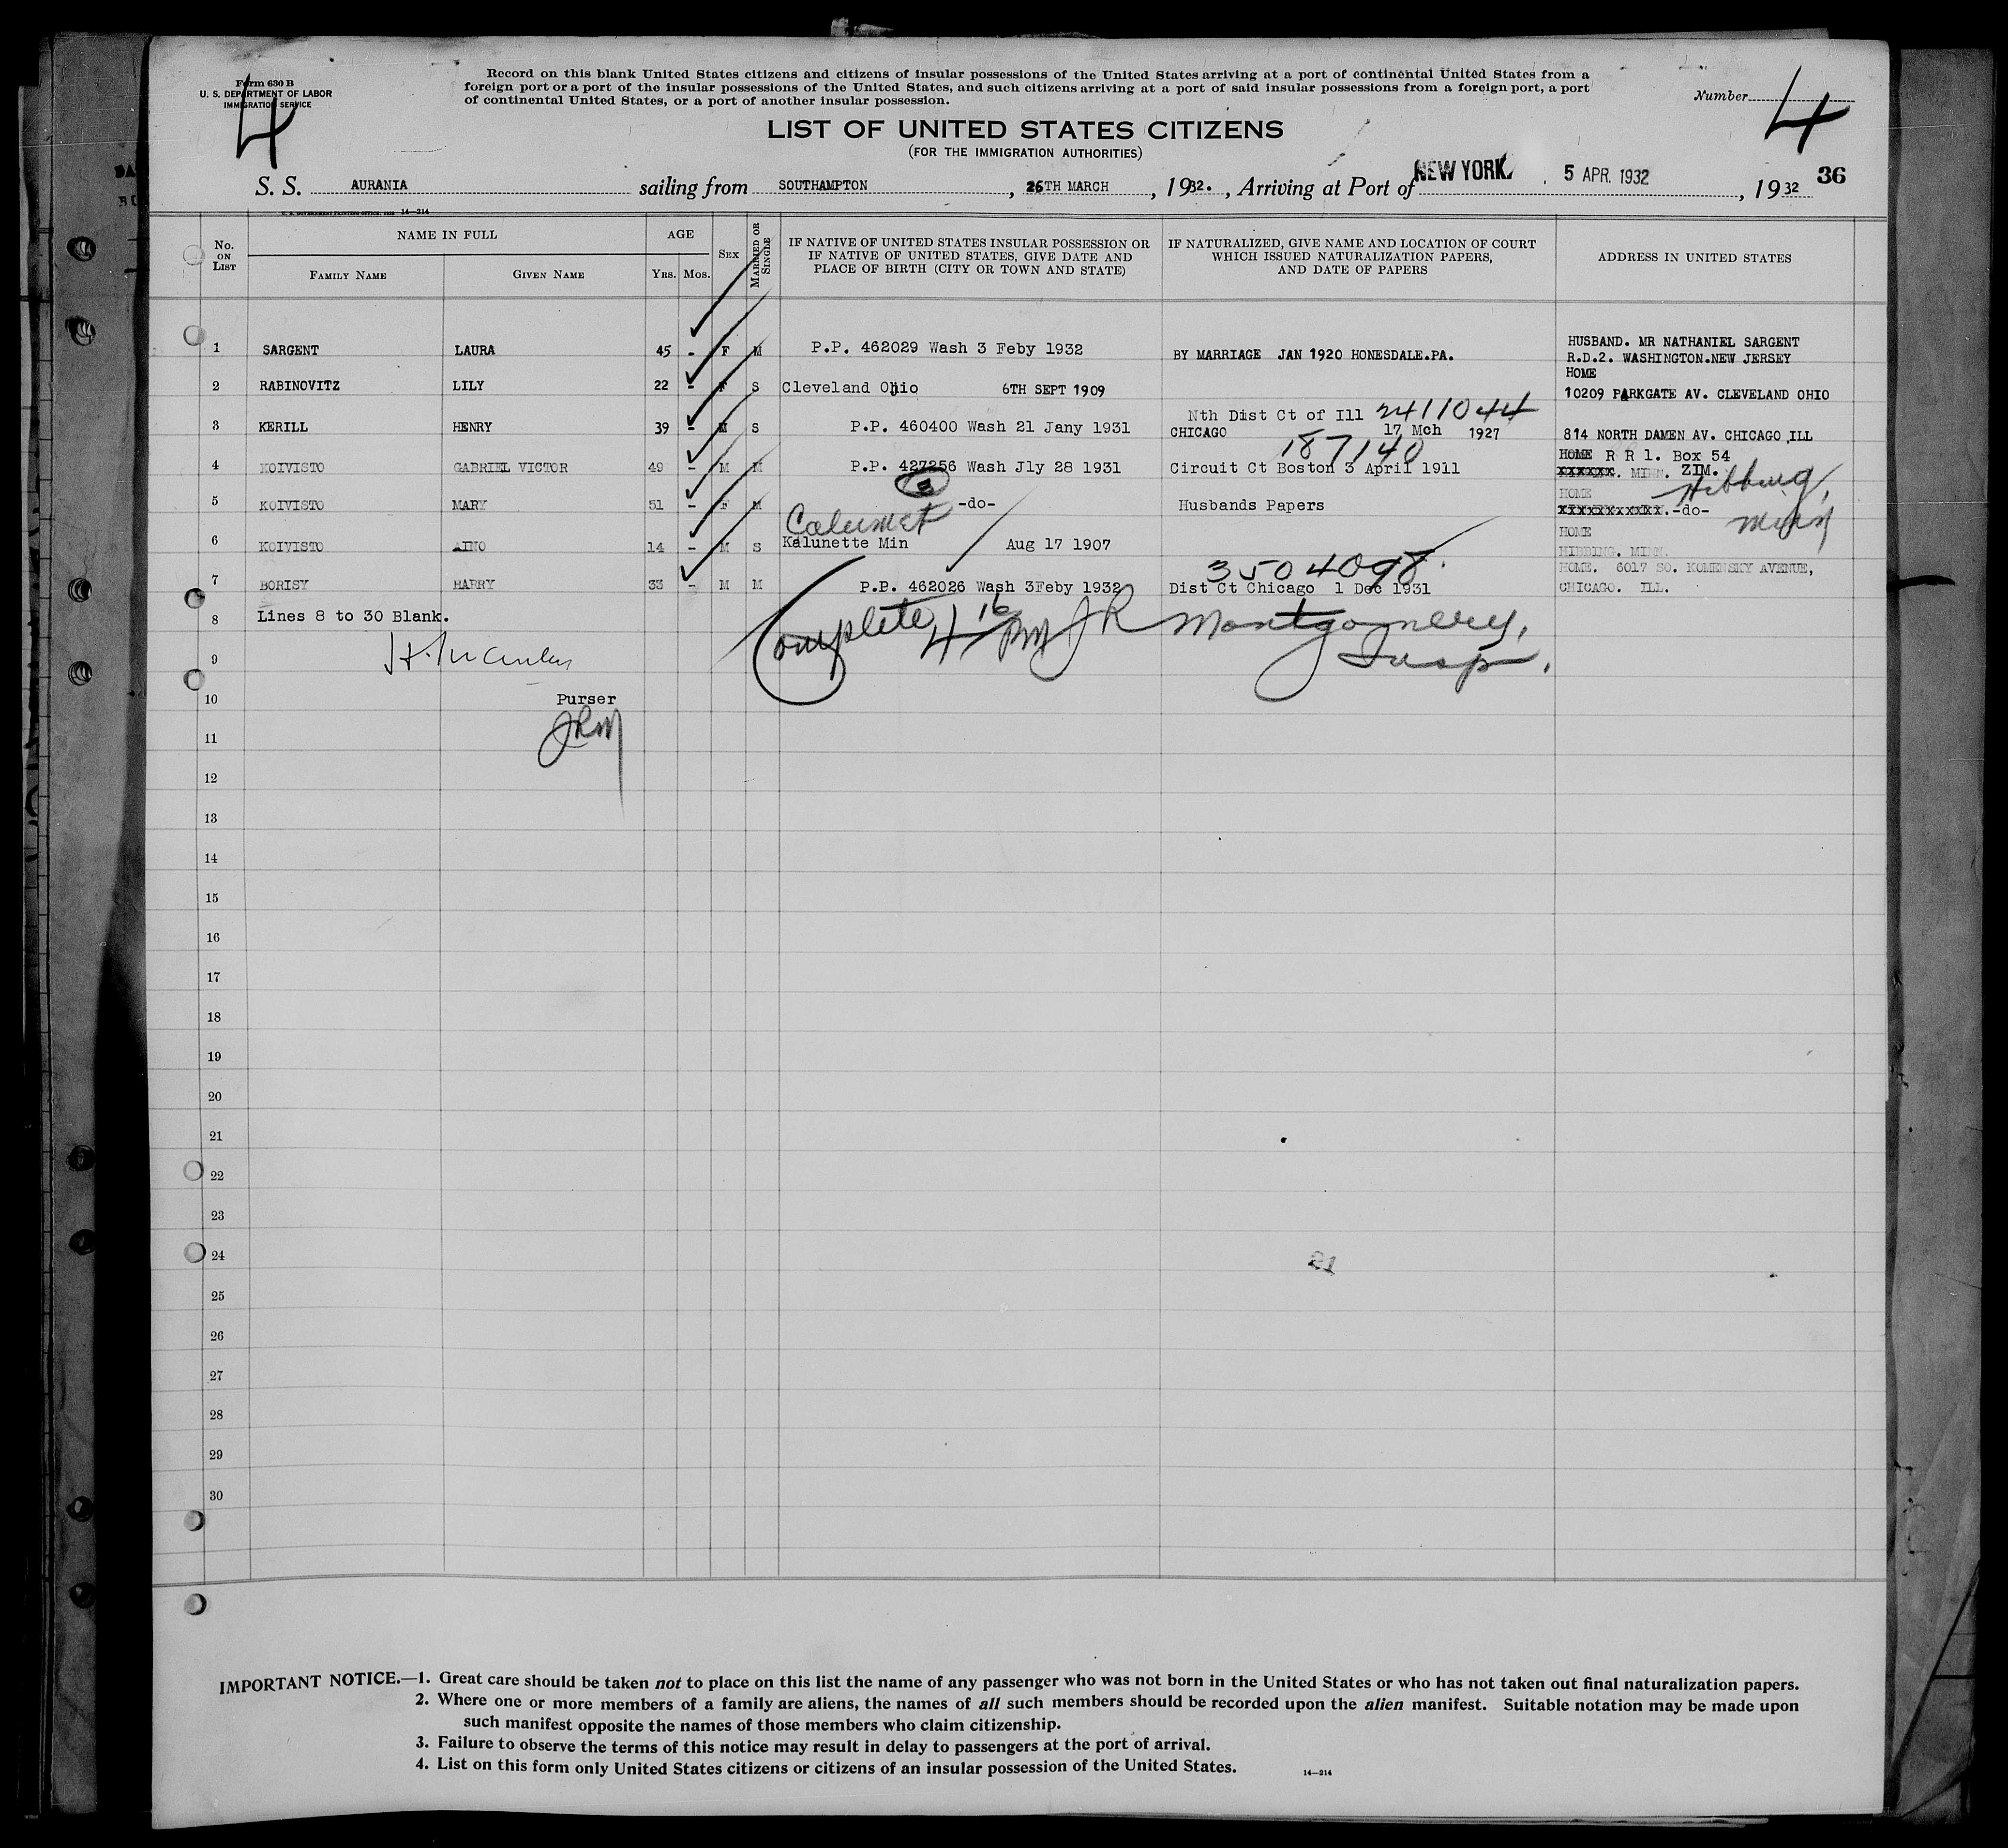 Form 630 B
U. S. DEPARTMENT OF LABOR
IMMIGRATION SERVICE
4
Record on this blank United States citizens and citizens of insular possessions of the United States arriving at a port of continental United States from a
foreign port or a port of the insular possessions of the United States, and such citizens arriving at a port of said insular possessions from a foreign port, a port
of continental United States, or a port of another insular possession.
Number
4
LIST OF UNITED STATES CITIZENS
(FOR THE IMMIGRATION AUTHORITIES)
S. S. AURANIA sailing from SOUTHAMPTON, 26TH MARCH, 1932., Arriving at Port of NEW YORK. 5 APR. 1932, 1932 36
14—214
No. ON LIST
NAME IN FULL
FAMILY NAME GIVEN NAME
AGE
YRS. MOS.
SEX
MARRIED OR SINGLE
IF NATIVE OF UNITED STATES INSULAR POSSESSION OR
IF NATIVE OF UNITED STATES, GIVE DATE AND
PLACE OF BIRTH (CITY OR TOWN AND STATE)
IF NATURALIZED, GIVE NAME AND LOCATION OF COURT
WHICH ISSUED NATURALIZATION PAPERS,
AND DATE OF PAPERS
ADDRESS IN UNITED STATES
1 SARGENT LAURA 45 - F M P.P. 462029 Wash 3 Feby 1932 BY MARRIAGE JAN 1920 HONESDALE.PA. HUSBAND. MR NATHANIEL SARGENT
R.D.2. WASHINGTON.NEW JERSEY
2 RABINOVITZ LILY 22 - F S Cleveland Ohio 6TH SEPT 1909 HOME
10209 PARKGATE AV. CLEVELAND OHIO
Nth Dist Ct of Ill 2411044
3 KERILL HENRY 39 - M S P.P. 460400 Wash 21 Jany 1931 CHICAGO 17 Mch 1927 814 NORTH DAMEN AV. CHICAGO ILL
187140
4 KOIVISTO GABRIEL VICTOR 49 - M M P.P. 427256 Wash Jly 28 1931 Circuit Ct Boston 3 April 1911 HOME R R 1. Box 54
xxxxxx. MINN. ZIM.
5 KOIVISTO MARY 51 - F M -do- Husbands Papers HOME Hibbing,
xxxxxxxxxxx.-do- Minn
Calumet
6 KOIVISTO AINO 14 - M S Kalunette Min Aug 17 1907 HOME
HIBBING. MINN.
3504098.
7 BORISY HARRY 33 - M M P.P. 462026 Wash 3Feby 1932 Dist Ct Chicago 1 Dec 1931 HOME. 6017 SO. KOMENSKY AVENUE,
CHICAGO. ILL.
8 Lines 8 to 30 Blank.
Complete 4 16 PM J R Montgomery,
Insp.
9
10 Purser
JRM
11
12
13
14
15
16
17
18
19
20
21
22
23
24
25
26
27
28
29
30
IMPORTANT NOTICE.—1. Great care should be taken not to place on this list the name of any passenger who was not born in the United States or who has not taken out final naturalization papers.
2. Where one or more members of a family are aliens, the names of all such members should be recorded upon the alien manifest. Suitable notation may be made upon
such manifest opposite the names of those members who claim citizenship.
3. Failure to observe the terms of this notice may result in delay to passengers at the port of arrival.
4. List on this form only United States citizens or citizens of an insular possession of the United States.
14—214